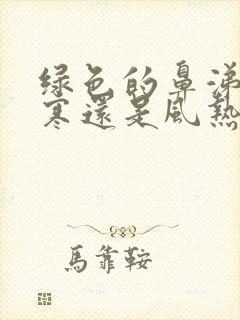 绿色的鼻涕
寒還是風熱
馬靠鞍